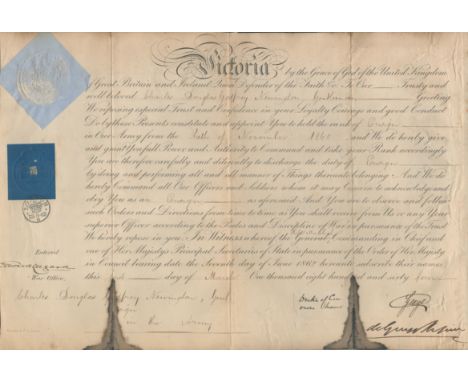 Victoria by the Grace of God of the United Kingdom
of Great Britain and Ireland Queen Defender of the Faith &c. To Our Trusty and
well beloved Charles Douglas Godfrey Newington Gentleman Greeting
We reposing especial Trust and Confidence in your Loyalty Courage and good Conduct
Do by these Presents constitute and appoint You to hold the rank of Ensign
in Our Army from the of November 186 and We do hereby give
and grant you full Power and Authority to Command and take your Rank accordingly
You are therefore carefully and diligently to discharge the duty of Ensign
by doing and performing all and all manner of Things thereunto belonging And We do
hereby Command all Our Officers and Soldiers whom it may Concern to acknowledge and
obey You as an Ensign as aforesaid And You are to observe and follow
such Orders and Directions from time to time as You shall receive from Us or any Your
superior Officer according to the Rules and Discipline of War in pursuance of the Trust
We hereby repose in you In Witness whereof the General Commanding in Chief and
one of Her Majesty's Principal Secretaries of State in pursuance of the Order of Her Majesty
in Council bearing date the seventh day of June 186 hereunto subscribe their names
this day of One thousand eight hundred and sixty
Entered
War Office.
Charles Douglas Godfrey Newington, Gent
Ensign
in the Army